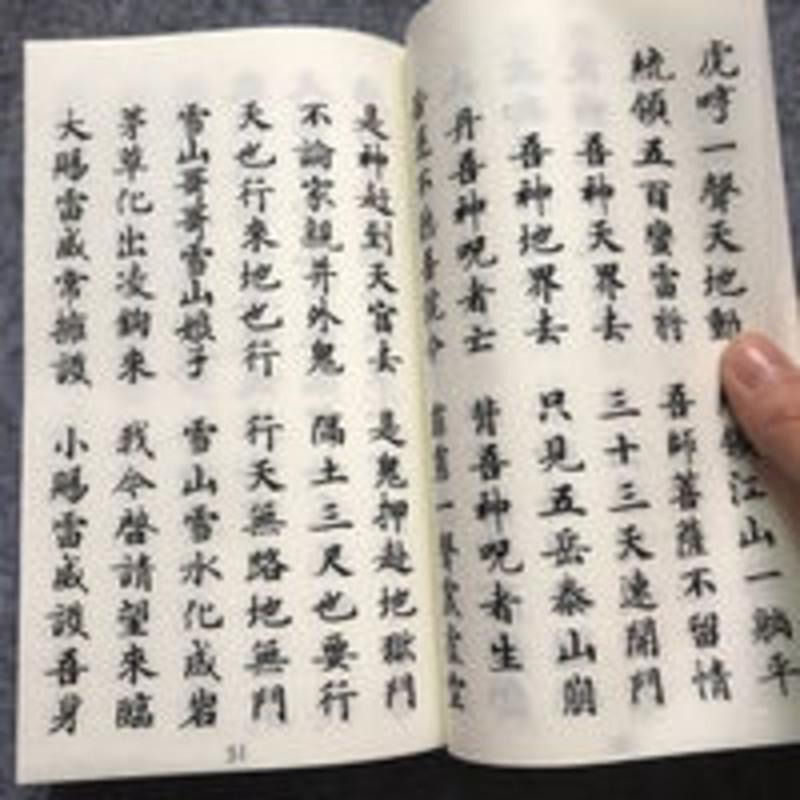 虎哼一聲天地動 江山一躺平
統領五百蠻雷將 吾師菩薩不留情
吾神天界去 三十三天速開門
吾神地界去 只見五岳泰山崩
丹吾神呪者亡 背吾神呪者生
是神赶到天宮去 是鬼押赴地獄門
不論家親并外鬼 隔土三尺也要行
天也行來地也行 行天無路地無門
雪山哥哥雪山娘子 雪山雪水化成岩
茅草化出凌鉤來 我今啓請望來臨
大賜雷威常擁護 小賜雷威護吾身
31